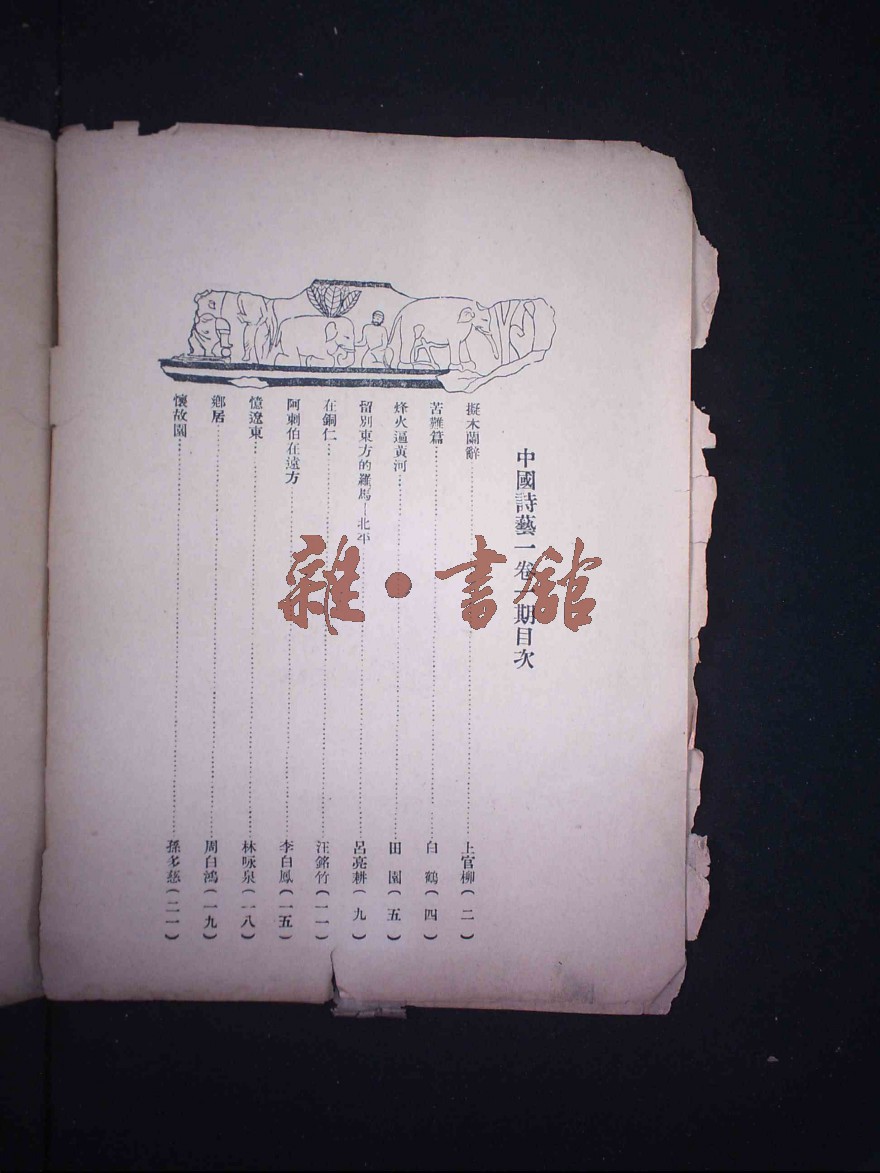 中國詩藝一卷一期目次
擬木蘭辭………上官柳(二)
苦難篇………白鶴(四)
烽火逼黃河………田園(五)
留別東方的羅馬—北平………呂亮耕(九)
在銅仁………汪銘竹(一一)
阿剌伯在遠方………李白鳳(一五)
憶遼東………林咏泉(一八)
鄉居………周白鴻(一九)
懷故園………孫多慈(二一)
雜·書館